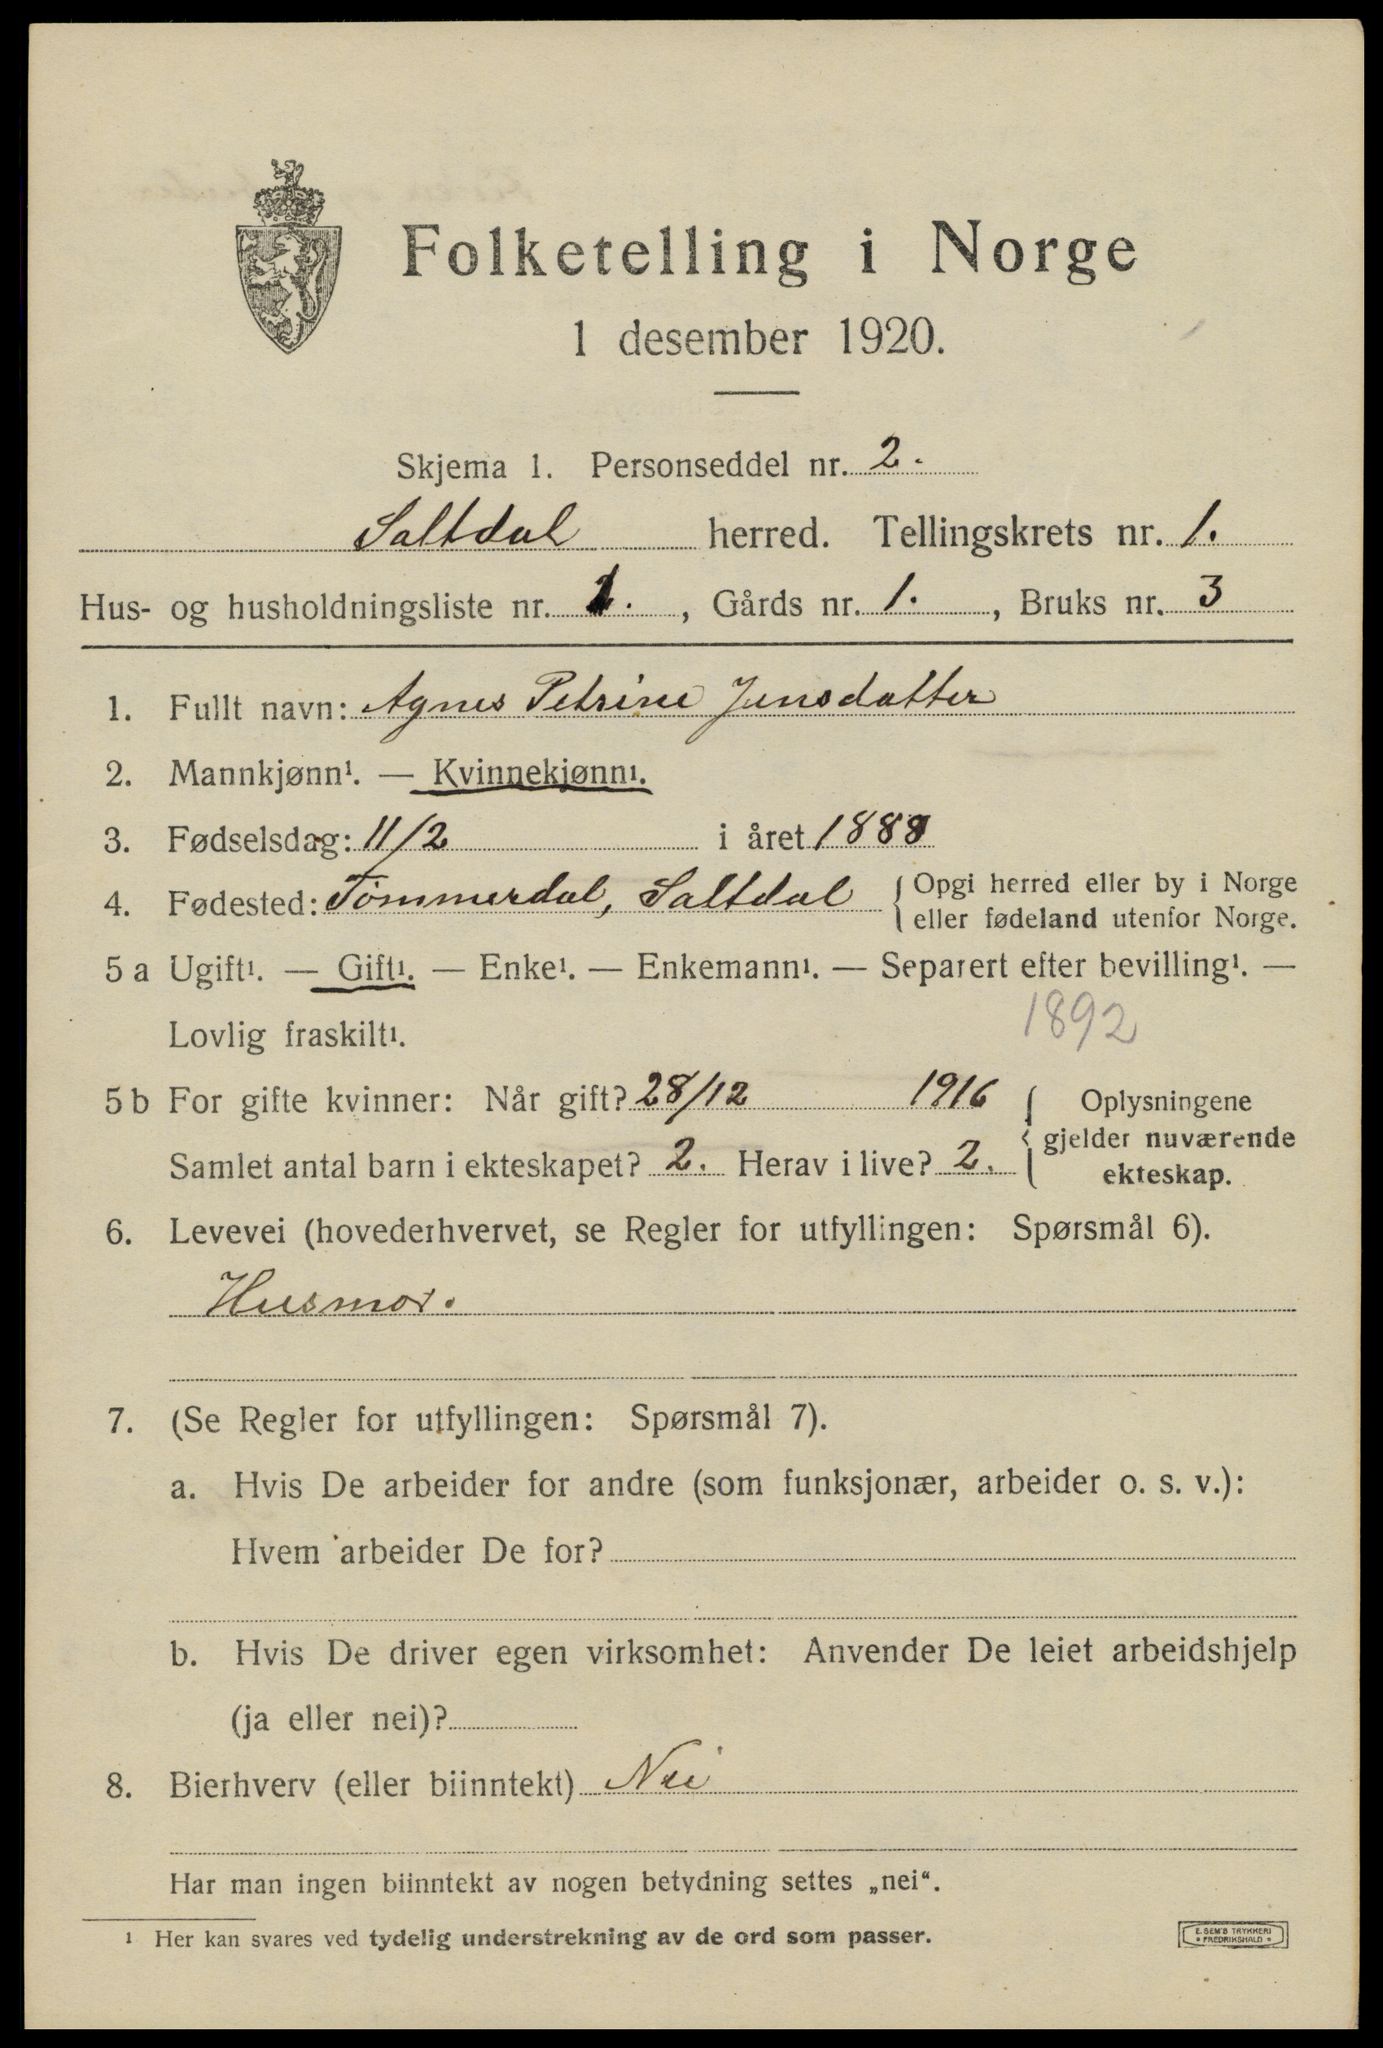 Folketelling i Norge
1 desember 1920.
Skjema 1. Personseddel nr. 2.
Saltdal herred. Tellingskrets nr. 1.
Hus- og husholdningsliste nr. 1. , Gårds nr. 1. , Bruks nr. 3
1. Fullt navn: Agnes Petrine Jensdatter
2. Mannkjønn¹. — Kvinnekjønn¹.
3. Fødselsdag: 11/2 i året 1888
4. Fødested: Tømmerdal, Saltdal { Opgi herred eller by i Norge
eller fødeland utenfor Norge.
5 a Ugift¹. — Gift¹. — Enke¹. — Enkemann¹. — Separert efter bevilling¹. —
Lovlig fraskilt¹.
1892
5 b For gifte kvinner: Når gift? 28/12 1916
Samlet antal barn i ekteskapet? 2. Herav i live? 2.
{ Oplysningene
gjelder nuværende
ekteskap.
6. Levevei (hovederhvervet, se Regler for utfyllingen: Spørsmål 6).
Husmor.
7. (Se Regler for utfyllingen: Spørsmål 7).
a. Hvis De arbeider for andre (som funksjonær, arbeider o. s. v.):
Hvem arbeider De for?
b. Hvis De driver egen virksomhet: Anvender De leiet arbeidshjelp
(ja eller nei)?
8. Bierhverv (eller biinntekt) Nei
Har man ingen biinntekt av nogen betydning settes „nei“.
¹ Her kan svares ved tydelig understrekning av de ord som passer.
E. SEM'S TRYKKERI
FREDRIKSHALD